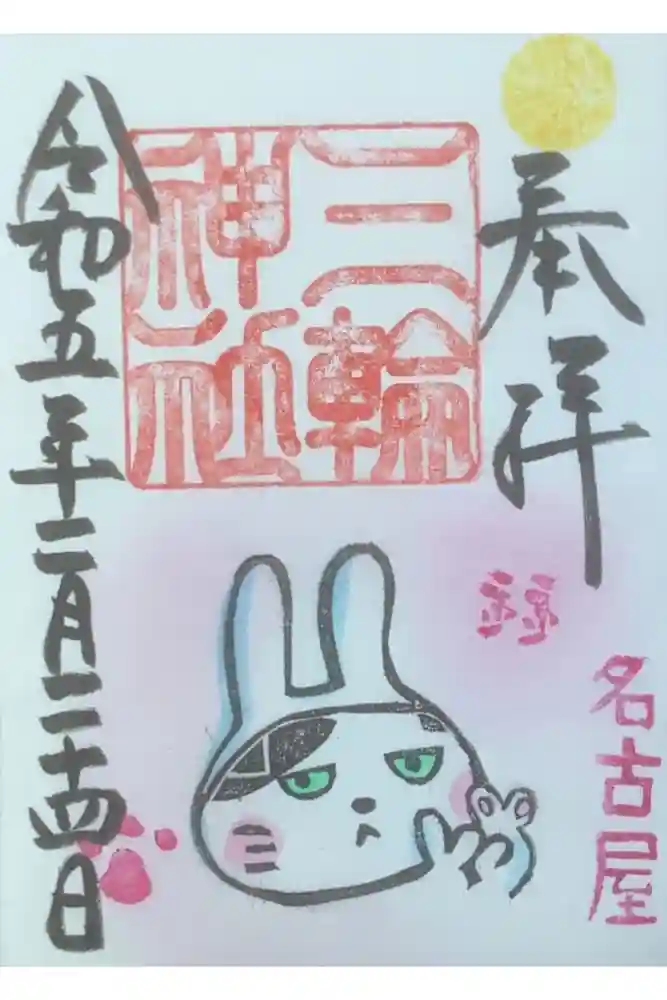 奉拝
名古屋
三輪
神社
令和五年二月二十四日